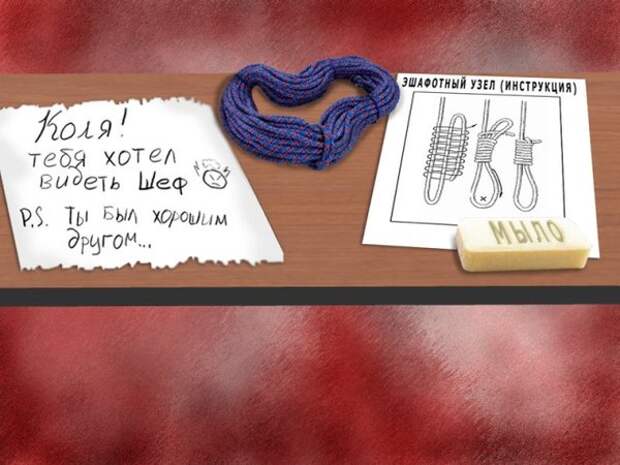 Коля!
тебя хотел
видеть Шеф
P.S. Ты был хорошим
другом...
ЭШАФОТНЫЙ УЗЕЛ (ИНСТРУКЦИЯ)
x
МЫЛО